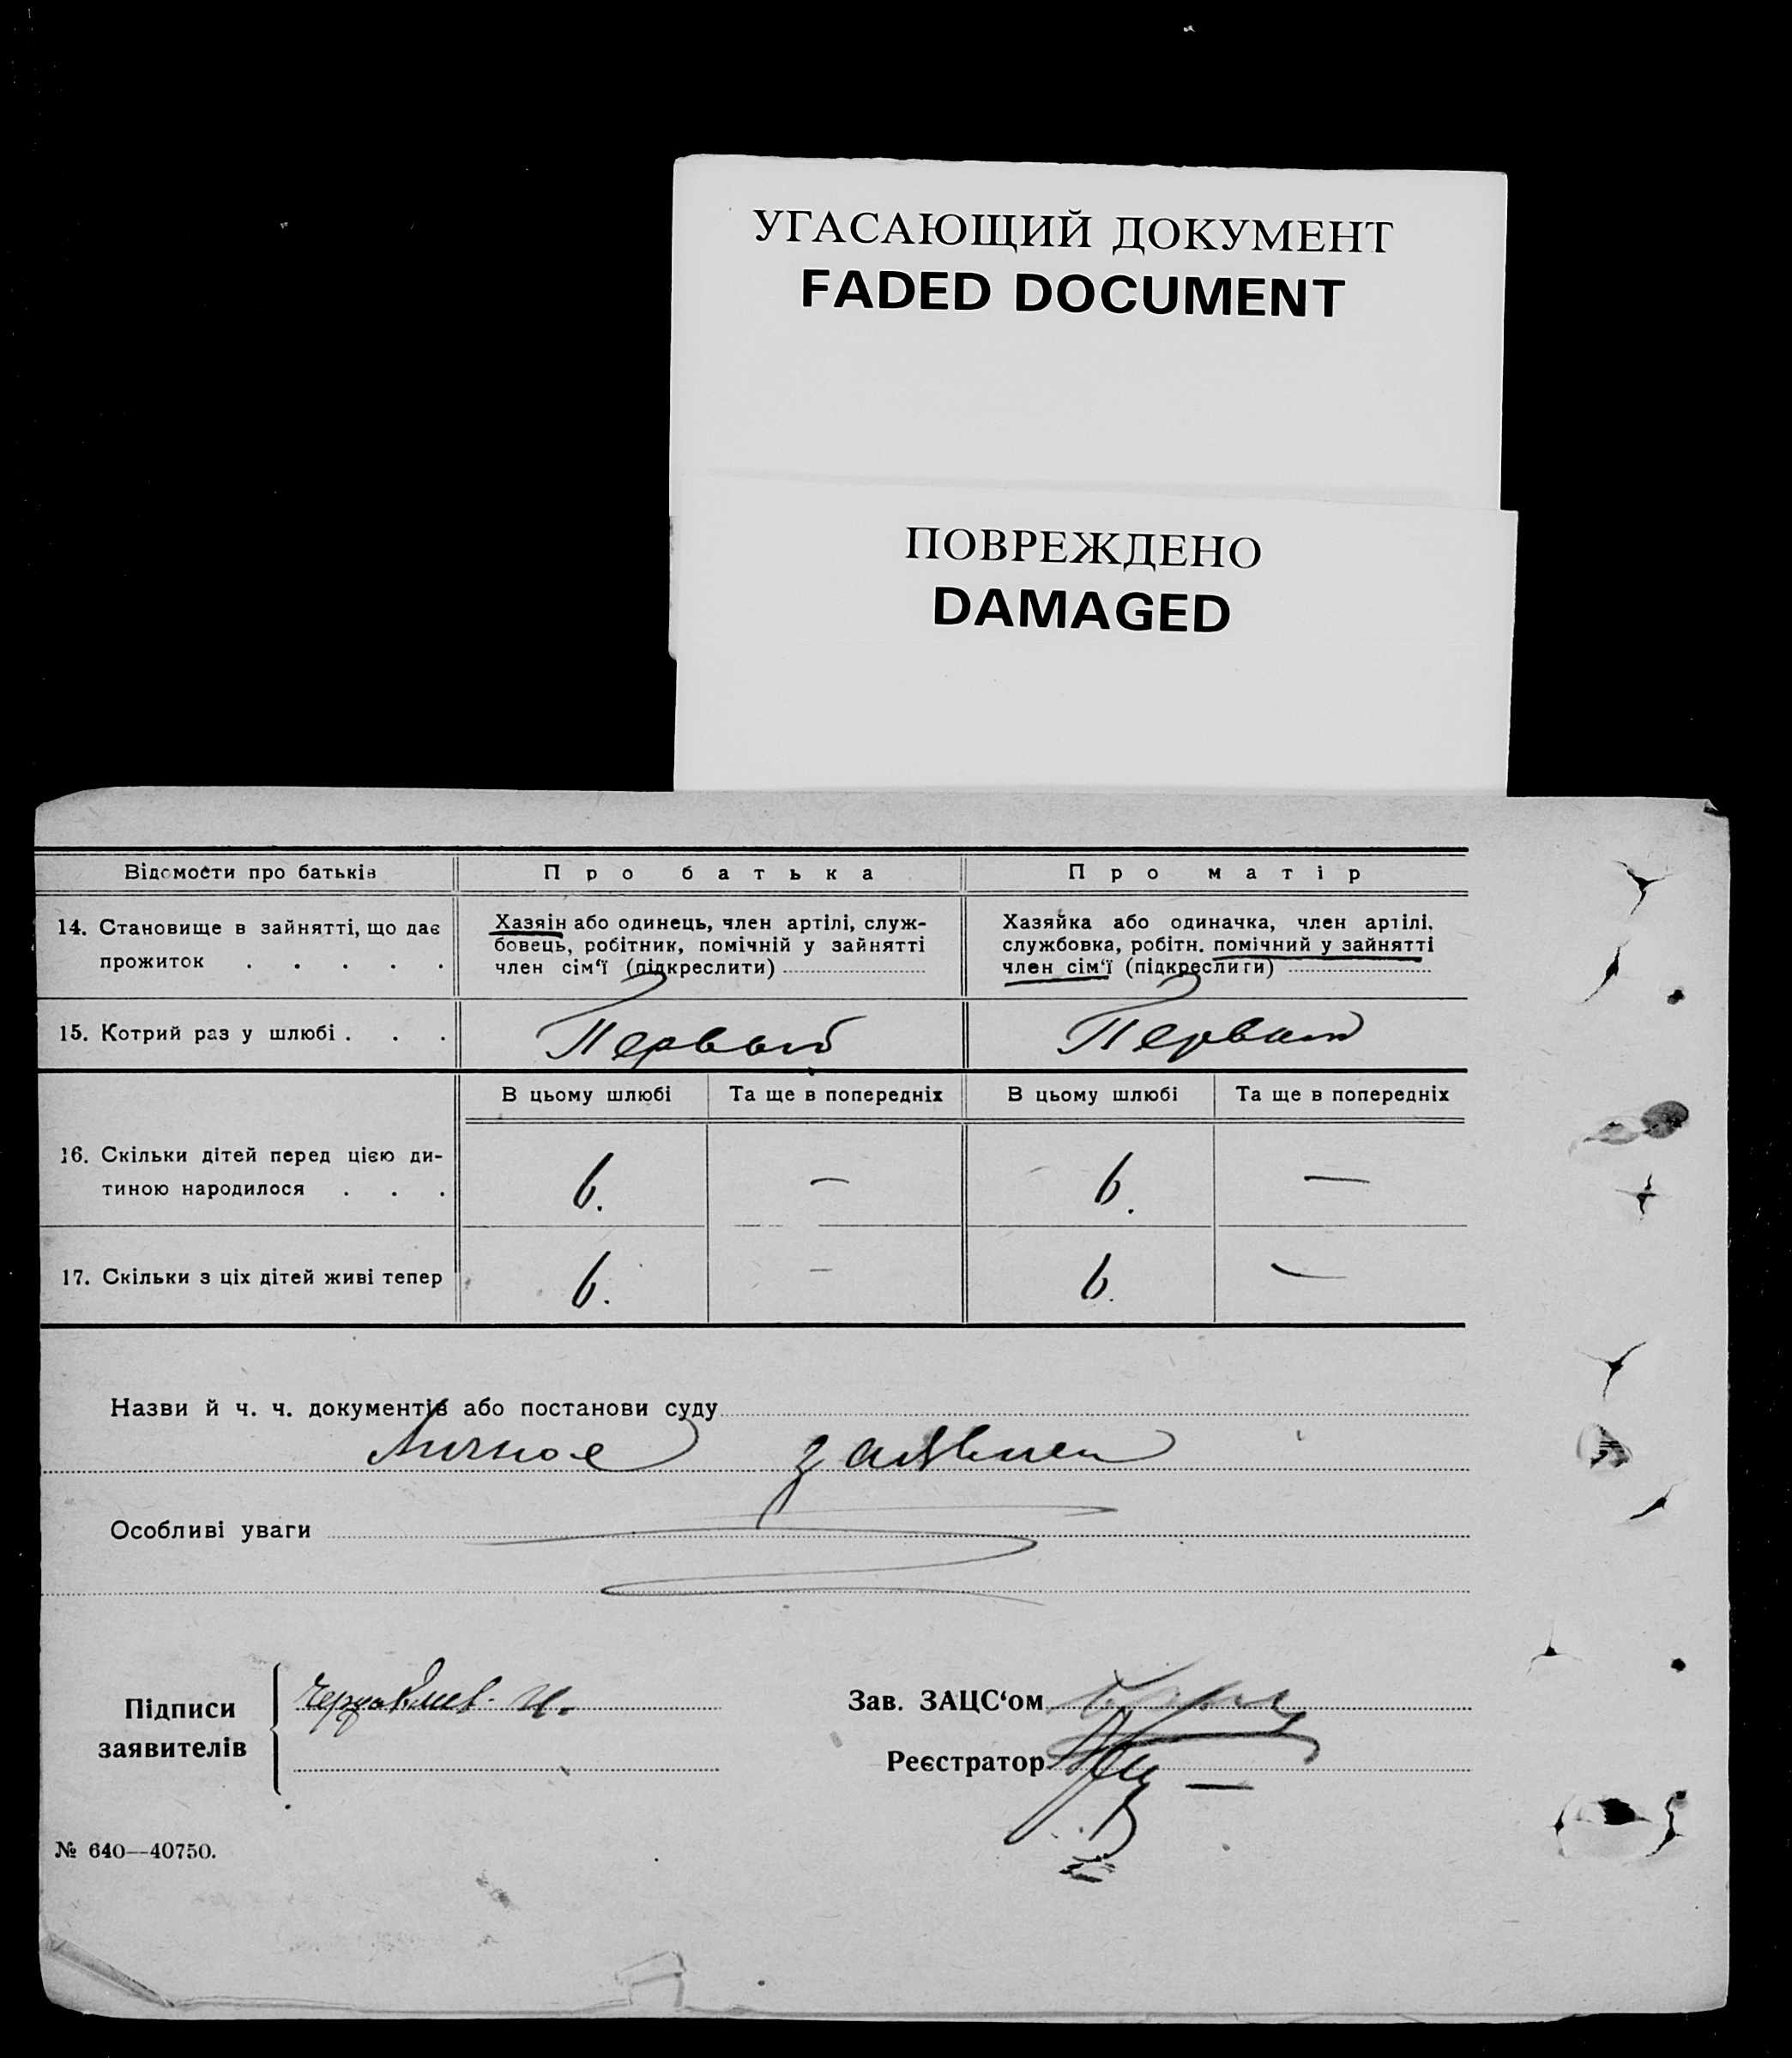 УГАСАЮЩИЙ ДОКУМЕНТ
FADED DOCUMENT
ПОВРЕЖДЕНО
DAMAGED
Відомости про батьків
Про батька
Про матір
14. Становище в зайнятті, що дає
прожиток . . . . .
Хазяін або одинець, член артілі, служ-
бовець, робітник, помічній у зайнятті
член сім‘ї (підкреслити)
Хазяйка або одиначка, член артілі,
службовка, робітн. помічний у зайнятті
член сім‘ї (підкреслити)
15. Котрий раз у шлюбі . . .
Первый
Первый
В цьому шлюбі
Та ще в попередніх
В цьому шлюбі
Та ще в попередніх
16. Скільки дітей перед цією ди-
тиною народилося . . .
6.
—
6.
—
17. Скільки з ціх дітей живі тепер
6.
—
6.
—
Назви й ч. ч. документів або постанови суду
Личное
Особливі уваги
Підписи
заявителів
Зав. ЗАЦС‘ом
Реєстратор
№ 640—40750.